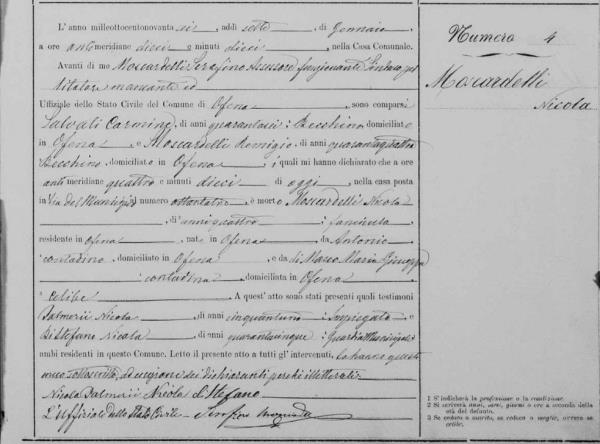 L'anno milleottocentonovanta sei, addi sette, di Gennaio
a ore anti meridiane dieci e minuti dieci, nella Casa Comunale.
Avanti di me Moscardelli Serafino Assessore funzionante Sindaco per
mancante ed
Uffiziale dello Stato Civile del Comune di Ofena, sono comparsi
Salvati Carmine, di anni quarantasei: Becchino domiciliato
in Ofena, e Moscardelli Remigio, di anni quarantaquattro
Becchino domiciliato in Ofena, i quali mi hanno dichiarato che a ore
anti meridiane quattro e minuti dieci di oggi, nella casa posta
in Via del Municipio al numero ottantatre, è morto Moscardelli Nicola
, di anni quattro: fanciullo
residente in Ofena, nato in Ofena, da Antonio
contadino, domiciliato in Ofena, e da di Marco Maria Giuseppa
contadina, domiciliata in Ofena
: celibe. A quest' atto sono stati presenti quali testimoni
Palmerii Nicola, di anni cinquantuno: Impiegato e
Distefano Nicola, di anni quarantacinque: Guardia Municipale
ambi residenti in questo Comune. Letto il presente atto a tutti gl' intervenuti, lo hanno questi
meco sottoscritto, ad eccezione dei dichiaranti perchè illetterati.
Nicola Palmerii Nicola diStefano
L'Uffiziale dello Stato Civile
Numero 4
Moscardelli
Nicola
1 S' indicherà la professione o la condizione.
2 Si scriverà anni, mesi, giorni o ore a seconda della
età del defunto.
3 Se celibe o nubile, se vedovo o moglie, ovvero se
celibe.